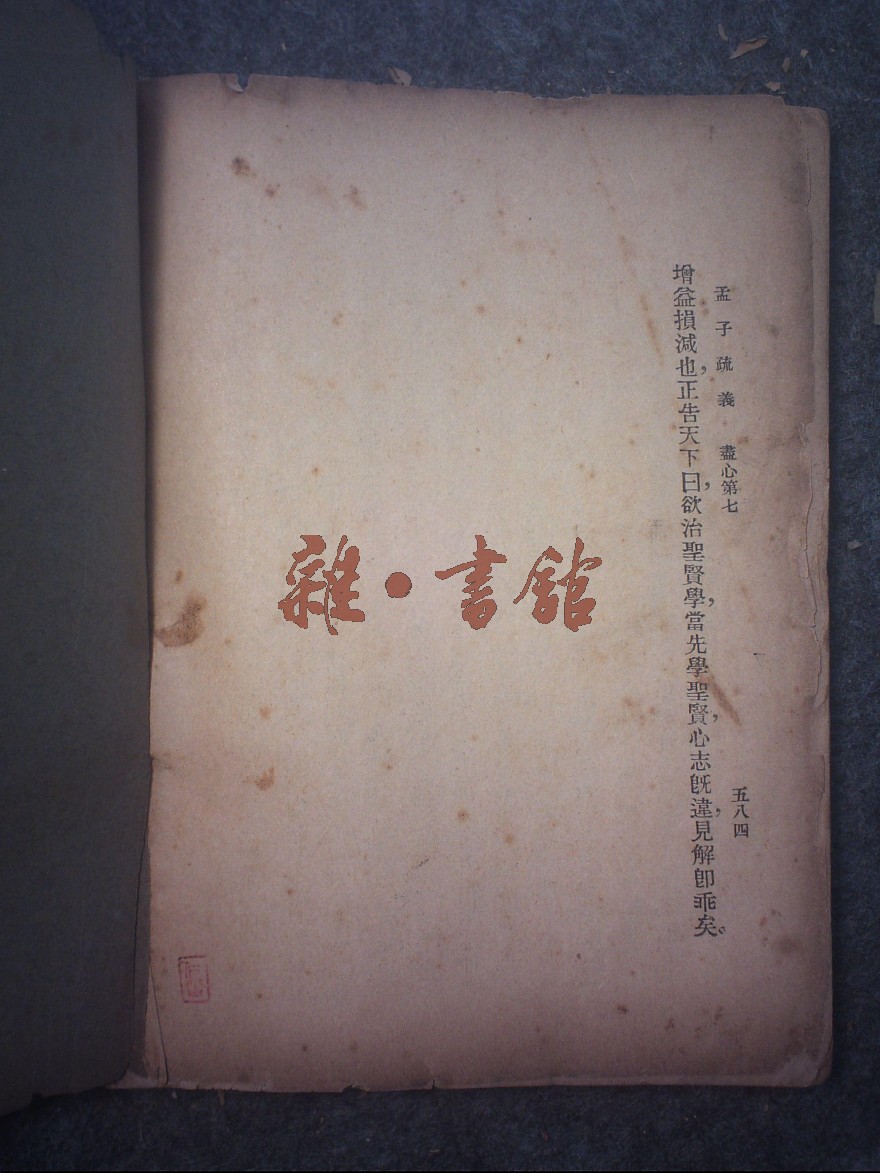 孟子疏義　盡心第七　五八四
增益損減也，正告天下曰，欲治聖賢學，當先學聖賢，心志既違，見解卽乖矣。
雜·書館